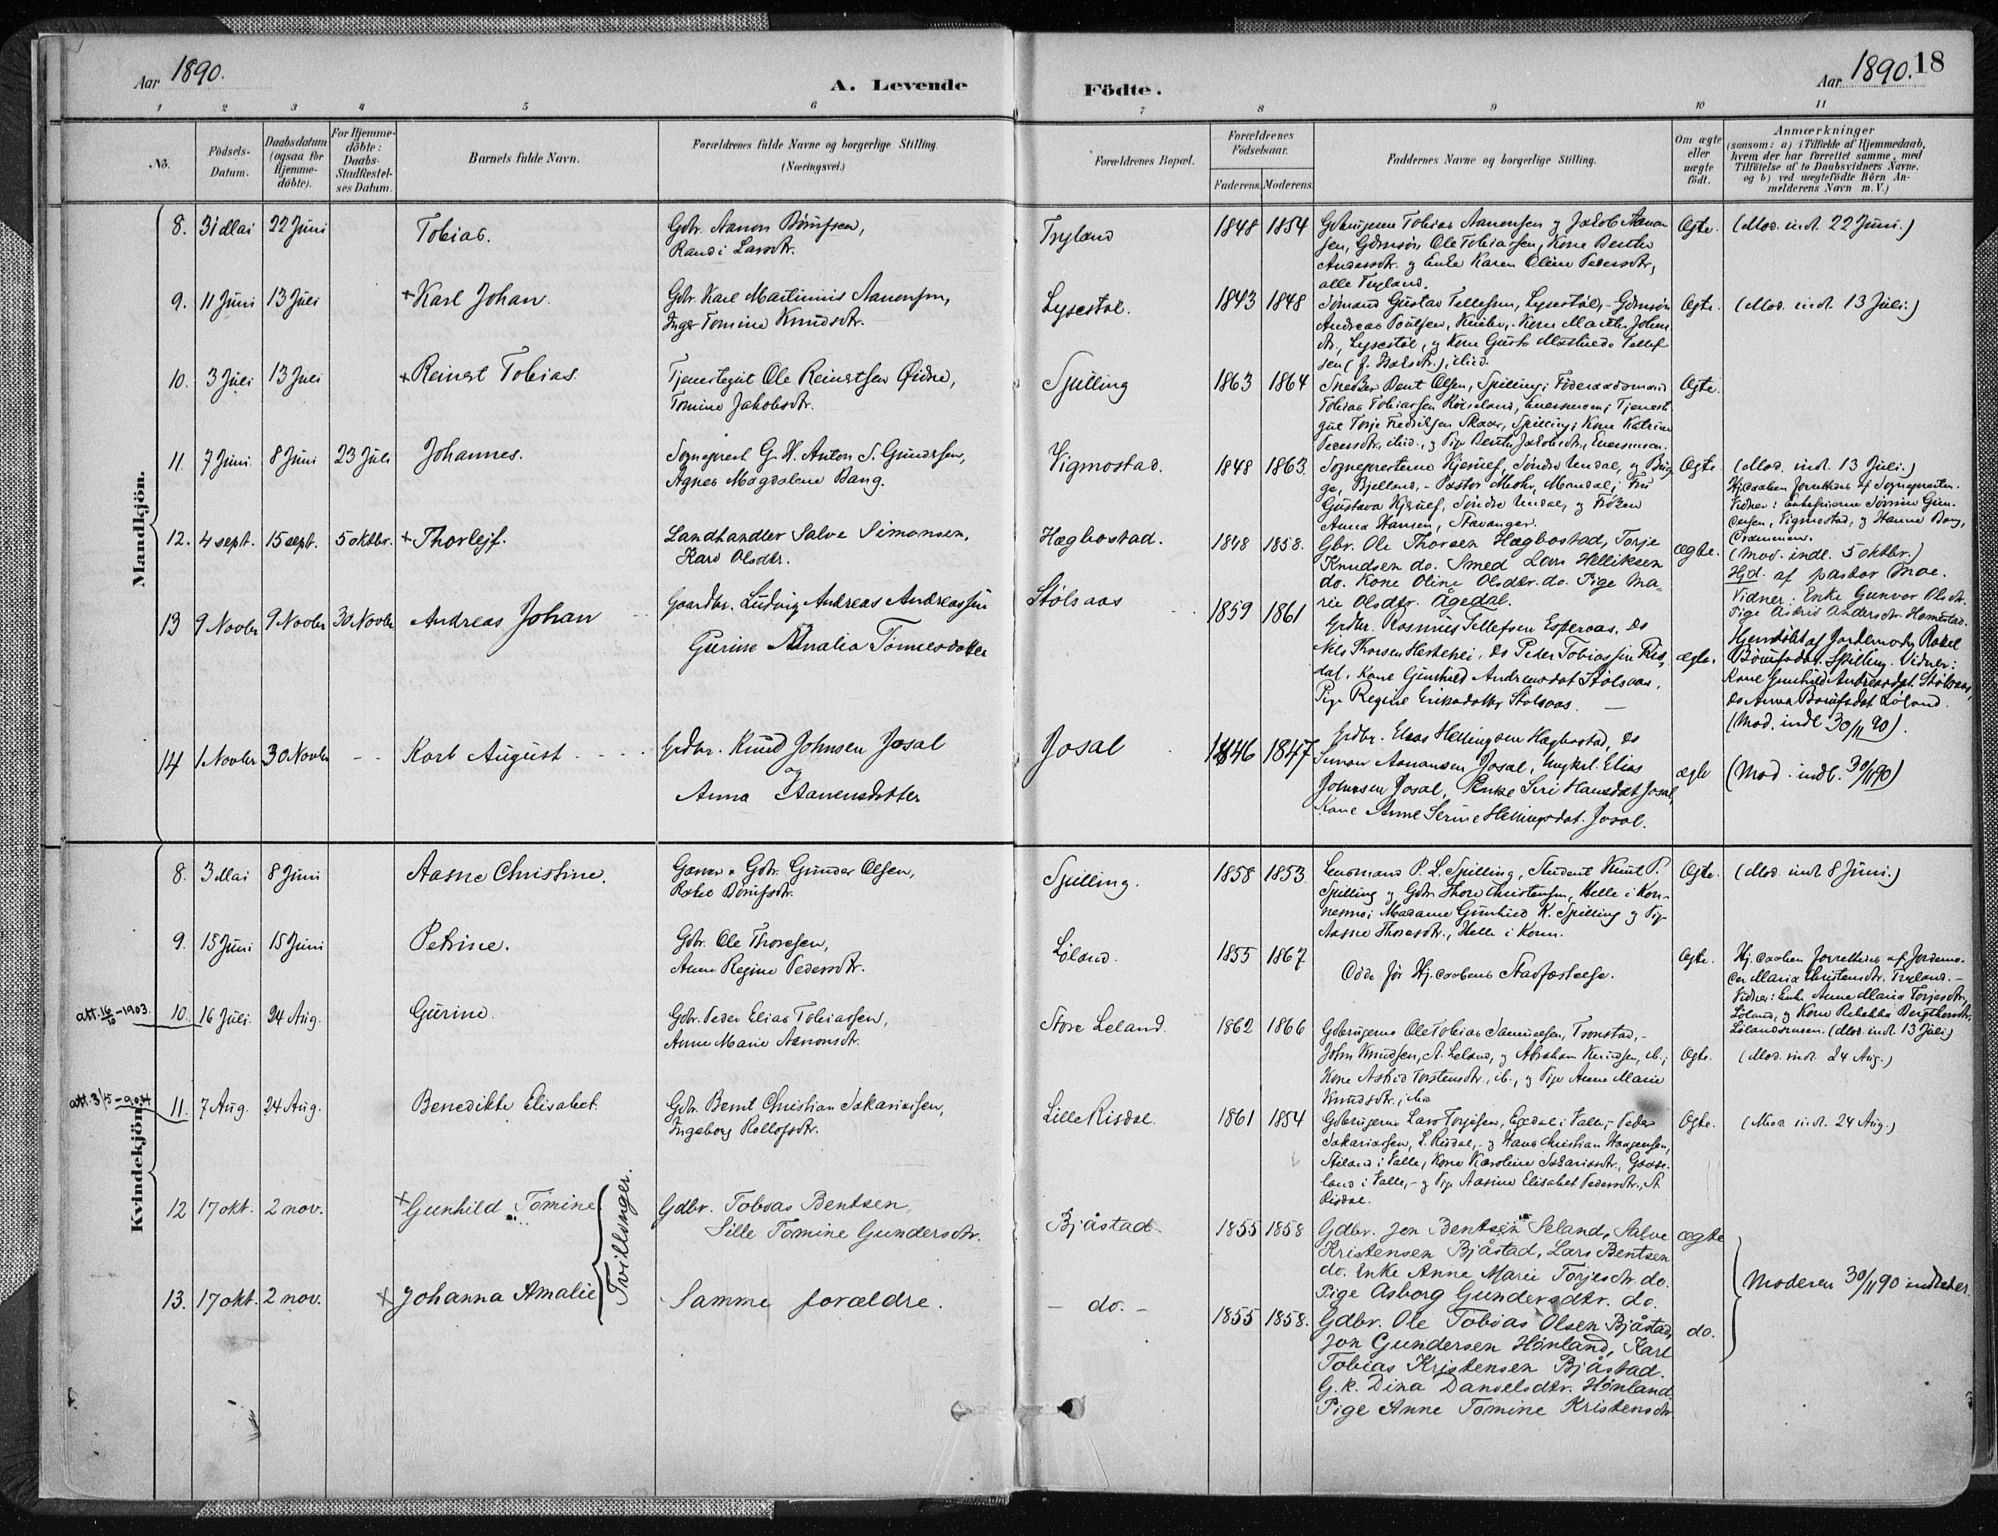 Aar 1890.
A. Levende Födte.
Aar 1890. 18
1 2 3 4 5 6 7 8 9 10 11
No.
Födsels-Datum.
Daabsdatum (ogsaa for Hjemme-döbte).
For Hjemme-döbte: Daabs-Stadfæstel-ses Datum.
Barnets fulde Navn.
Forældrenes fulde Navne og borgerlige Stilling. (Næringsvei.)
Forældrenes Bopæl.
Forældrenes Födselsaar.
Faderens. Moderens.
Faddernes Navne og borgerlige Stilling.
Om ægte eller uægte födt.
Anmærkninger
(saasom: a) i Tilfælde af Hjemmedaab, hvem der har forrettet samme, med Tilföielse af to Daabsvidners Navne. og b) ved uægtefödte Börn An-melderens Navn m. V.)
Mandkjön.
8. 31 Mai 22 Juni Tobias.
Gdbr. Aanon Börufsen,
Randi Larsdtr.
Tryland 1848 1854
Gdbrugerne Tobias Aanonsen og Jakob Aanon
sen, Gdmsön Ole Tobiassen, Kone Berthe
Andersdtr. og Enke Karen Oline Pedersdtr.,
alle Tryland.
Ægte. (Mod. indl. 22 Juni.)
9. 11 Juni 13 Juli + Karl Johan.
Gdbr. Karl Martinius Aanonsen,
Inger Tomine Knudsdtr.
Lysestøl. 1843 1848
Sömand Gustav Tellefsen, Lysestøl, - Gdmsön
Andreas Poulsen, Kone Marthe Johns
dtr., Lysestøl, og Kone Gusta Mathilde Tellef
sen
Ægte. (Mod. indl. 13 Juli.)
10. 3 Juli 13 Juli + Reinert Tobias.
Tjenestegut Ole Reinertsen Øidne,
Tomine Jakobsdtr.
Spilling 1863 1864
Bent Olsen, Spilling; Föderaadsmand
Tobias Tobiassen Tjeneste
gut Torje Fredriksen Skaar, Spilling; Kone Katrine
Pedersdtr. ibid., og Pige Berthe Jakobsdtr.,
Ægte.
11. 7 Juni. 8 Juni 23 Juli Johannes.
Sogneprest G. H. Anton S. Gundersen,
Agnes Magdalene Bang.
Vigmostad. 1848 1863.
Sognepresterne Kjerulf, Söndre Undal, og Bug
ge, Bjelland, - Pastor Mohr, Mandal; Fru
Gustava Kjerulf, Söndre Undal, og Fröken
Anna Hansen, Stavanger.
Ægte. (Mod. indl. 13 Juli.)
Hj.daaben forrettedes af Sognepresten.
Vidner: Enkefruerne Severine Gun-
dersen, Vigmostad, og Hanne Bang,
12. 4 sept. 15 sept. 5 oktbr. + Thorleif.
Landhandler Salve Simonsen,
Karo Olsdtr.
Hægbostad. 1848 1858.
Gbr. Ole Thorsen Hægbostad, Torje
Knudsen do. Smed Lars Helliksen
do. Kone Oline Olsdtr. do. Pige Ma-
rie Olsdtr. Ågedal.
ægte. (Mod. indl. 5 oktbr.)
Hjd. af pastor Moe.
Vidner: Enke Gunvor Olsdtr.
Pige Astrid Andersdtr. Homestad.
13 9 Novbr 9 Novbr 30 Novbr Andreas Johan
Gaardbr. Ludvig Andreas Andreassen
Gurine Amalia Tönnesdatter
Stölsaas 1859 1861
Grdbr. Rasmus Tellefsen Esperaas. Do
Nils Thorsen Do Peder Tobiassen Ris-
dal. Kone Gunhild Andreasdat. Stölsaas.
Pige Regine Eriksdatter Stölsaas.
ægte. Hjemdöbt af Jordemoder Rakel
Börufsdat. Spilling. Vidner:
Kone Gunhild Andreasdat. Stölsaas,
Do Anna Börufsdat. Löland.
(Mod. indl 30/11 90).
14 1 Novbr 30 Novbr - - Karl August
Grdbr. Knud Johnsen Josal
og
Anna Aanensdatter
Josal 1846 1847
Grdbr. Elias Hellingsen Hægbostad, Do
Simon Aanansen Josal, Ungkrl. Elias
Johnsen Josal, Enke Siri Hansdat. Josal,
Kone Anne Serine Hellingsdat. Josal.
ægte (Mod. indl. 30/11 90)
Kvindekjön.
8. 3 Mai 8 Juni Aasne Christine.
Garver & Gdbr. Gunder Olsen,
Rakel Börufsdtr.
Spilling. 1858 1853
Lensmand P. L. Spilling, Student Knut P.
Spilling og Gdbr. Thore Christensen, Helle i Kon-
nesmo; Madame Gunhild K. Spilling og Pige
Aasne Thoresdtr., Helle i Konn.
Ægte. (Mod. indl 8 Juni.)
9. 15 Juni 15 Juni Petrine.
Gdbr. Ole Thoresen,
Anne Regine Pedersdtr.
Löland. 1855 1867.
Döde för Hj.daabens Stadfæstelse.
Ægte. Hj.daaben forrettedes af Jordemo-
der Maria Christensdtr. Tryland. -
Vidner: Enke Anne Maria Torjesdtr,
Löland, og Kone Rebekka Bergthorsdtr,
(Mod. indl. 13 Juli)
att. 16/10 - 1903. 10. 16 Juli 24 Aug. Gurine.
Gdbr. Peder Elias Tobiassen,
Anne Marie Aanonsdtr.
Store Leland. 1862 1866
Gdbrugerne Ole Tobias Samuelsen, Tronstad, -
John Knudsen, St. Leland, og Abraham Knudsen, ib.;
Kone Astrid Torstensdtr., ib., og Pige Anne Marie
Knudsdtr., ibid
Ægte. (Mod. indl. 24 Aug.)
att. 3/5 - 904 11. 7 Aug. 24 Aug. Benedikte Elisabet.
Gdbr. Bernt Christian Sakariassen,
Ingeborg Rollofsdtr.
Lille Risdal. 1861 1854
Gdbrugerne Lars Torjesen, Egdal i Valle, Peder
Sakariassen, L. Risdal, - og Hans Christian Haagensen,
Stiland i Valle, Kone Karoline Sakariasdtr.,
land i Valle, - og Pige Aasine Elisabet Pedersdtr., St.
Risdal.
Ægte. (Mod. indl. 24 Aug.)
12 17 okt. 2 nov. + Gunhild Tomine
Tvillinger.
Gdbr. Tobias Bentsen,
Sille Tomine Gundersdtr.
Bjåstad. 1855 1858
Gdbr. Jon Bentsen Seland, Salve
Kristensen Bjåstad, Lars Bentsen
do. Enke Anne Marie Torjesdtr. do.
Pige Asborg Gundersdtr. do.
ægte
Moderen 30/11 90 indledet.
13. 17 okt. 2 nov. + Johanna Amalie
Samme forældre.
- do. - 1855 1858.
Gdbr. Ole Tobias Olsen Bjåstad,
Jon Gundersen Hønland, Karl
Tobias Kristensen Bjåstad.
G.k. Dina Danielsdtr. Hønland.
Pige Anne Tomine Kristensdtr.
do.